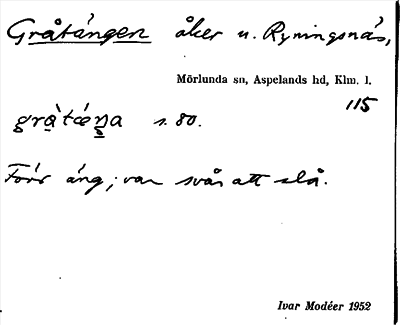 Gråtängen åker u. Ryningsnäs,
Mörlunda sn, Aspelands hd, Klm. l.
115
s. 80.
Förr äng; var svår att slå.
Ivar Modéer 1952